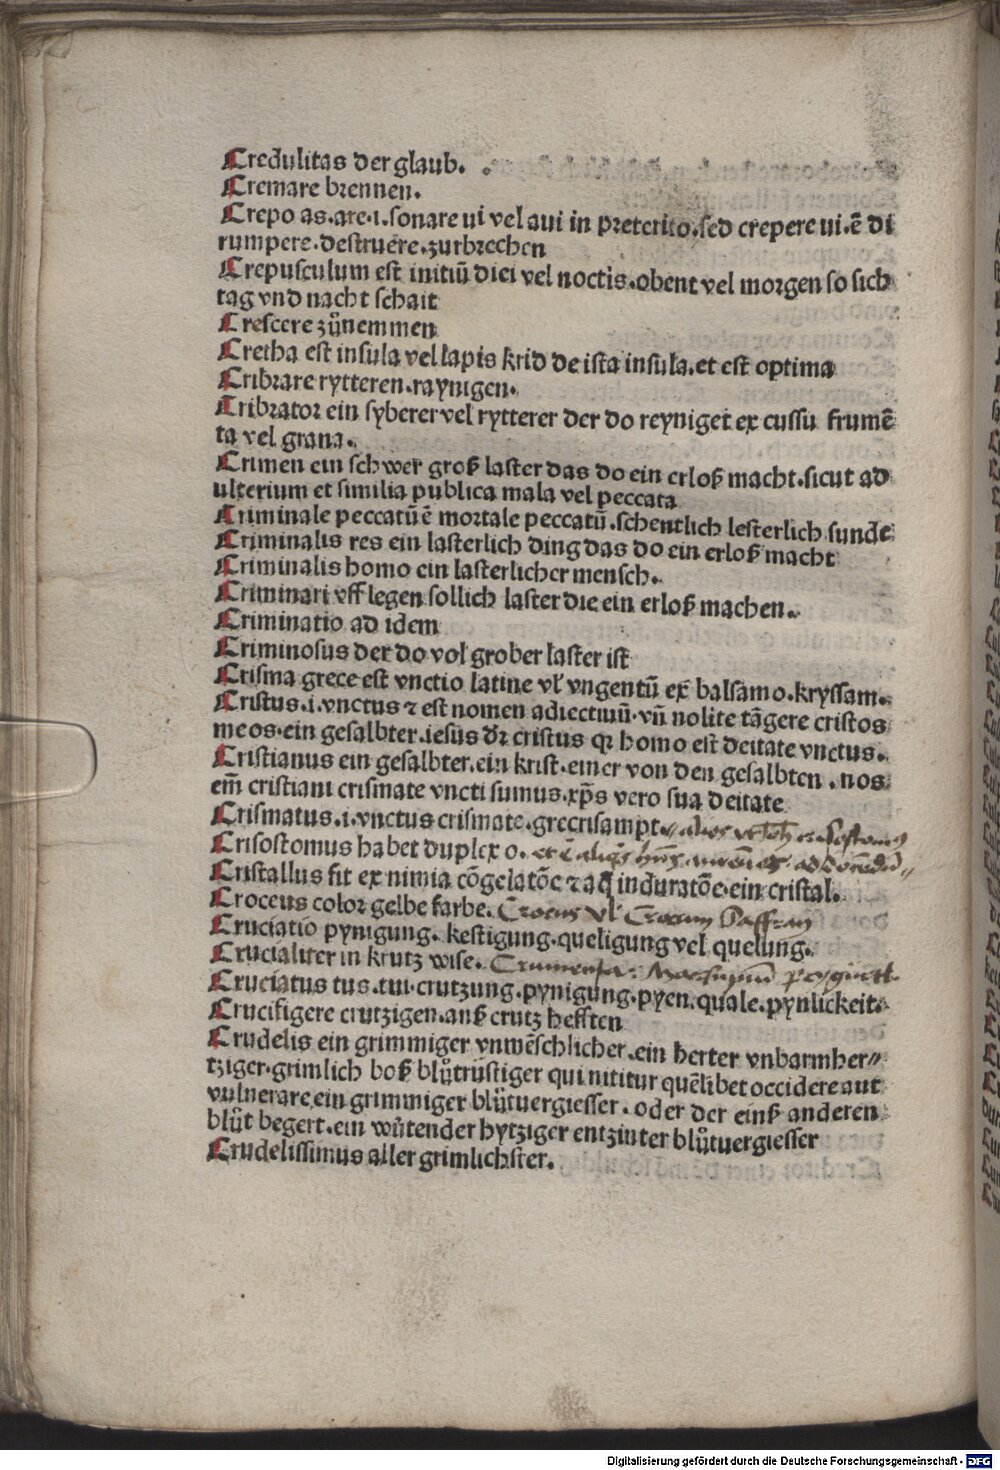 Credulitas der glaub.
Cremare brennen.
Crepo as.are.i.sonare ui vel aui in preterito.sed crepere ui.ē di
rumpere.destruere.zurbrechen
Crepusculum est initiū diei vel noctis.obent vel morgen so sich
tag vnd nacht schait
Crescere zůnemmen
Cretha est insula vel lapis krid de ista insula.et est optima
Cribrare rytteren.raynigen.
Cribrator ein syberer vel rytterer der do reyniget ex cussu frumē
ta vel grana.
Crimen ein schwer groß laster das do ein erloß macht.sicut ad
ulterium et similia publica mala vel peccata
Criminale peccatū ē mortale peccatū.schentlich lesterlich sunde
Criminalis res ein lasterlich ding das do ein erloß macht
Criminalis homo ein lasterlicher mensch.
Criminari vff legen sollich laster die ein erloß machen.
Criminatio ad idem
Criminosus der do vol grober laster ist
Crisma grece est vnctio latine vł vngentū ex balsamo.kryssam.
Cristus.i.vnctus ⁊ est nomen adiectiuū.vñ nolite tāgere cristos
meos.ein gesalbter.iesus dr̄ cristus qꝛ homo est deitate vnctus.
Cristianus ein gesalbter.ein krist.einer von den gesalbten.nos
em̄ cristiani crismate vncti sumus.xp̄s vero sua deitate
Crismatus.i.vnctus crismate.grecrisampt.
Crisostomus habet duplex o.
Cristallus fit ex nimia cōgelatōe ⁊ aq̄ induratōe.ein cristal.
Croceus color gelbe farbe. Crocus vł Crocum Saffran
Cruciatio pynigung.kestigung.queligung vel quelung.
Crucialiter in krutz wise. Crumensa: Marsupiū
Cruciatus tus.tui.crutzung.pynigung.pyen.quale.pynlickeit.
Crucifigere crutzigen.anß crutz hefften
Crudelis ein grimmiger vnmēschlicher.ein herter vnbarmher⸗
tziger.grimlich boß blůtrustiger qui nititur quēlibet occidere aut
vulnerare.ein grimmiger blůtuergiesser.oder der einß anderen
blůt begert.ein wůtender hytziger entzinter blůtuergiesser
Crudelissimus aller grimlichster.
Digitalisierung gefördert durch die Deutsche Forschungsgemeinschaft - DFG